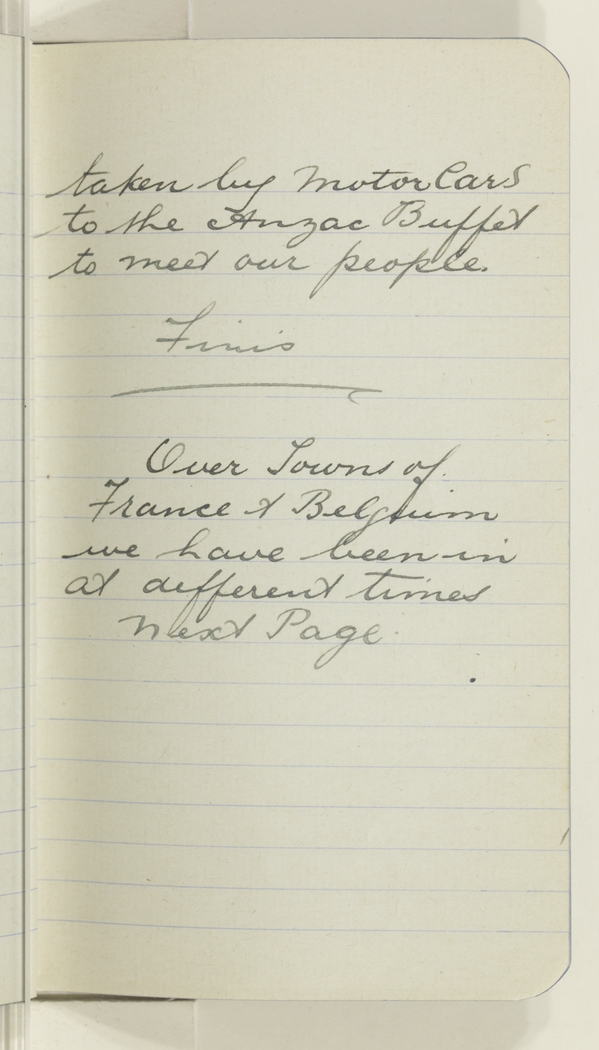 taken by Motor Cars
to the Anzac Buffet
to meet our people.
Finis
Over Towns of
France & Belguim
we have been in
at different times
Next Page.